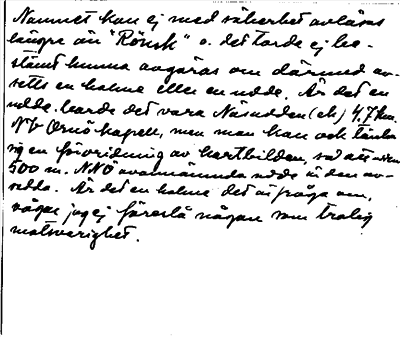 Namnet kan ej med säkerhet avläsas
längre än "Rönsk" o. det torde ej be-
stämt kunna avgöras om därmed av-
setts en holme eller en udde. Är det en
udde, torde det vara Näsudden (ek) 4,7 km.
NV Ornö kapell, men man kan och tänka
sig en förvridning av kartbilden, så att udden
500 m. NNÖ ovannämnda udde är den av-
sedda. Är det en holme det är fråga om,
vågar jag ej föreslå någon som trolig
motsvarighet.